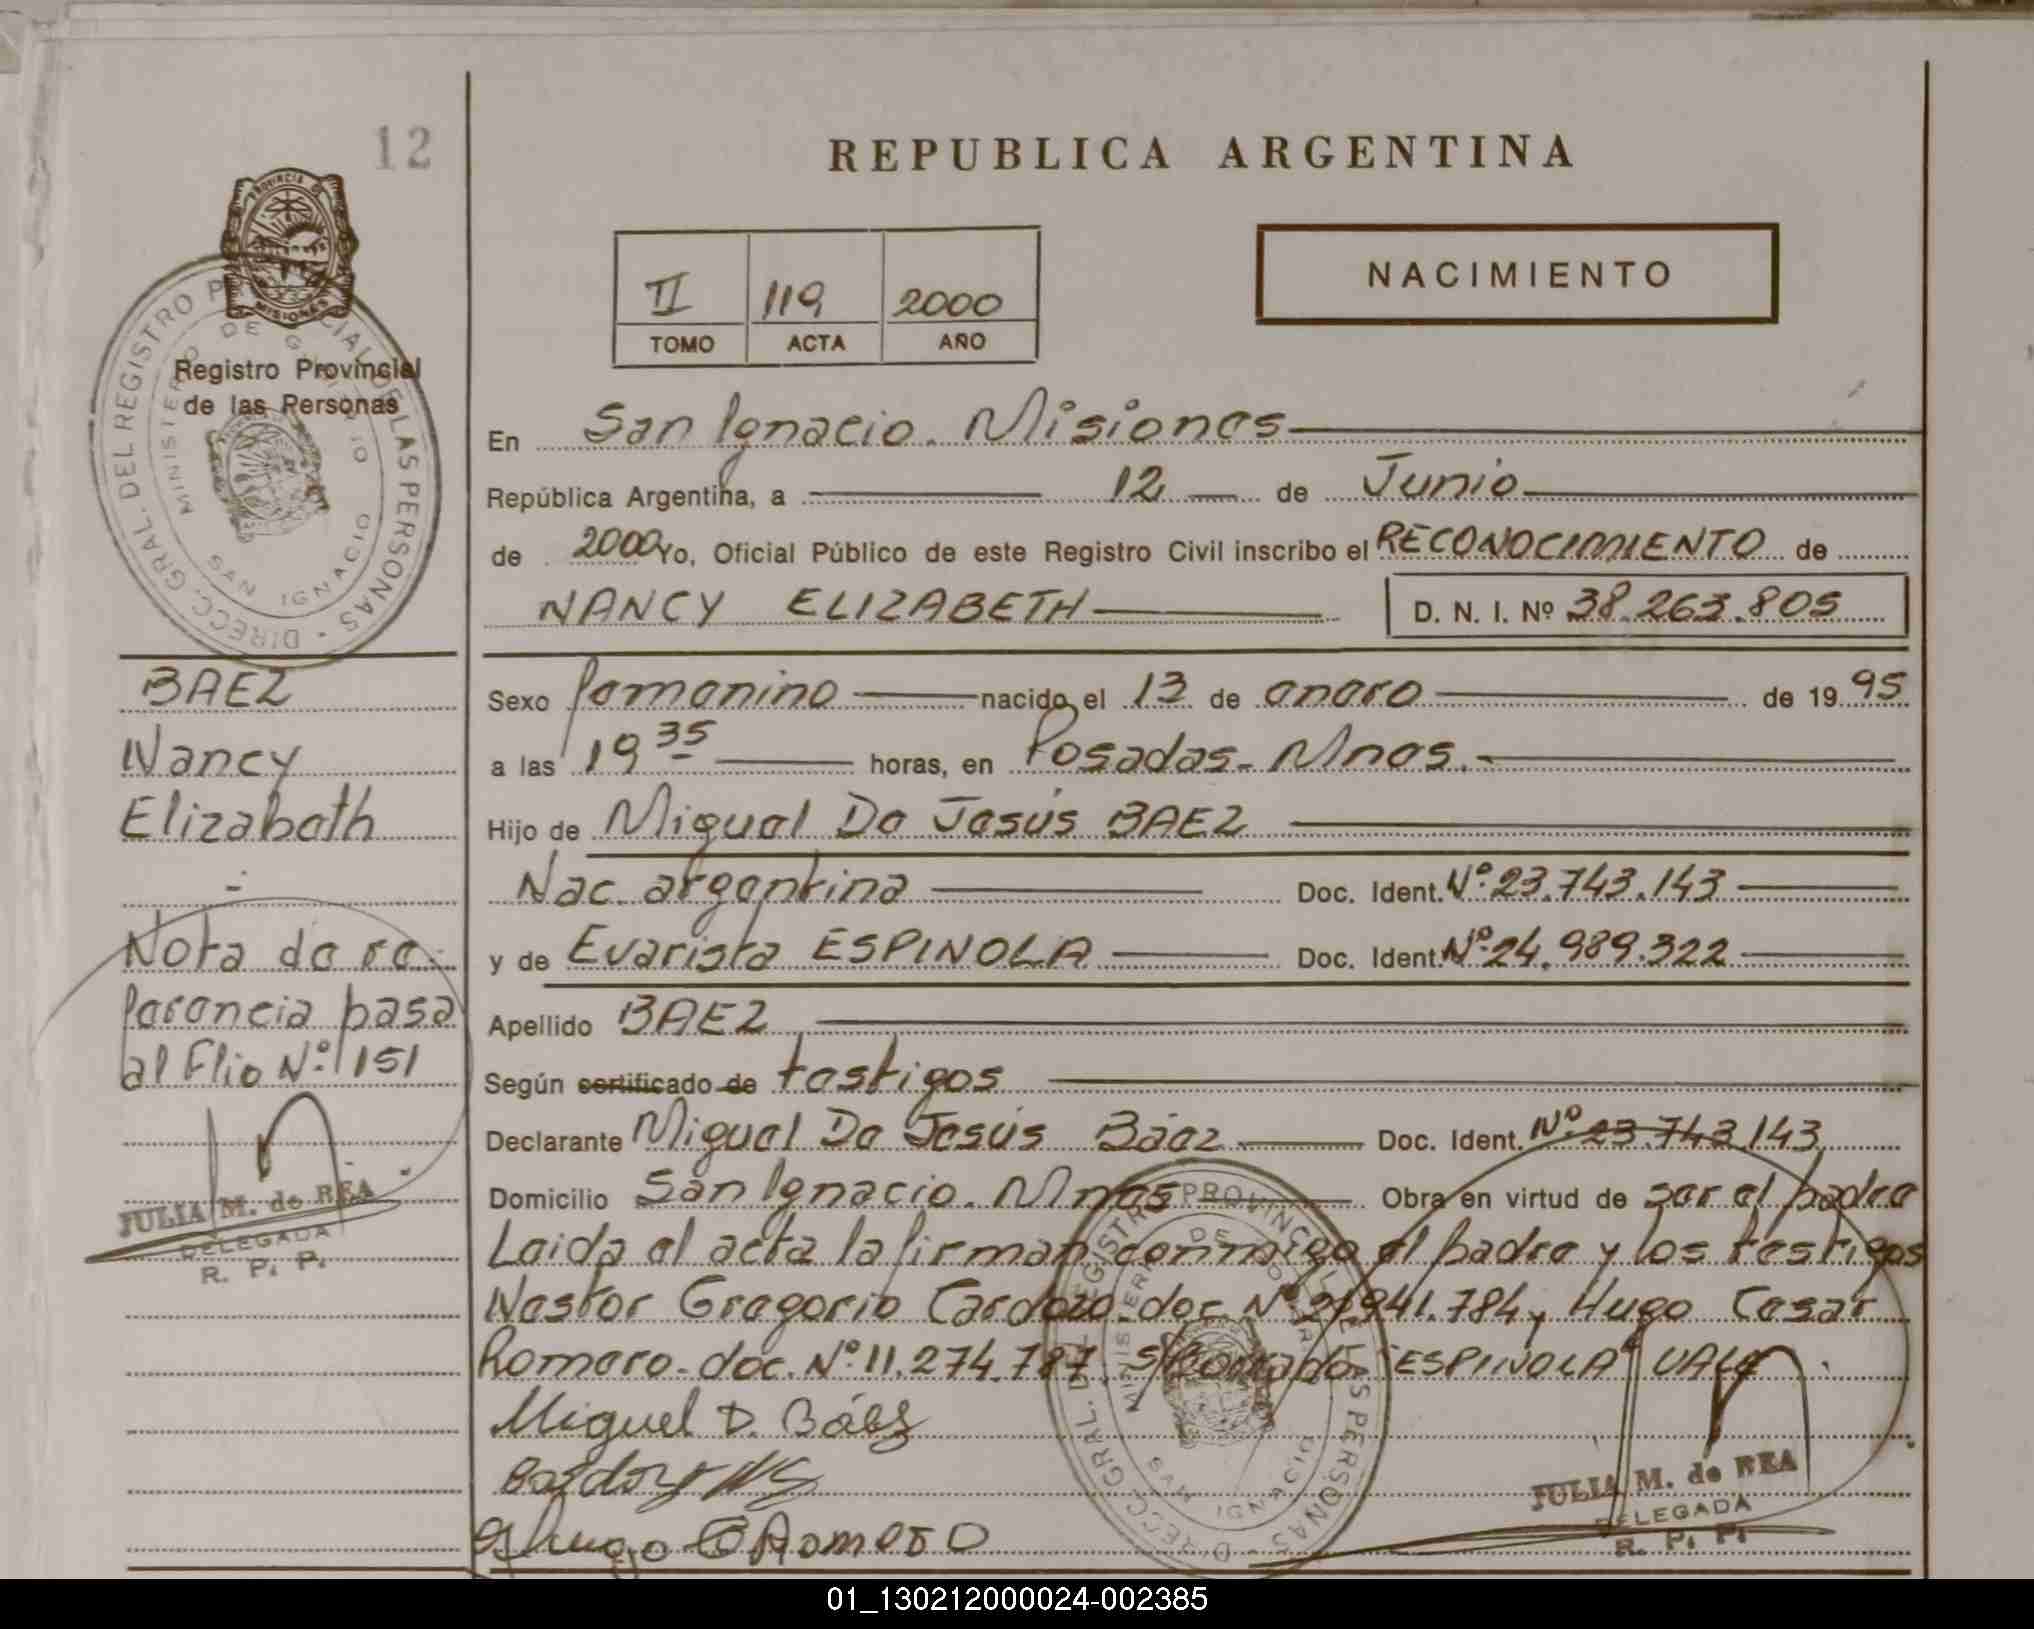 12
REPUBLICA ARGENTINA
PROVINCIA DE MISIONES
NACIMIENTO
II 119 2000
TOMO ACTA AÑO
Registro Provincial
de las Personas
DIRECC. GRAL. DEL REGISTRO PROVINCIAL DE LAS PERSONAS
MINISTERIO DE GOBIERNO
SAN IGNACIO
En San Ignacio. Misiones
República Argentina, a 12 de Junio
de 2000 Yo, Oficial Público de este Registro Civil inscribo el RECONOCIMIENTO de
NANCY ELIZABETH D. N. I. Nº 38.263.805
BAEZ
Nancy
Elizabeth
-
Nota de re-
ferencia pasa
al Flio Nº: 151
JULIA M. de REA
DELEGADA
R. P. P.
Sexo femenino nacido el 13 de enero de 1995
a las 19 35 horas, en Posadas - Mnes.-
Hijo de Miguel De Jesús BAEZ
Nac. argentina Doc. Ident. Nº 23.743.143
y de Evarista ESPINOLA Doc. Ident. Nº 24.989.322
Apellido BAEZ
Según certificado de testigos
Declarante Miguel De Jesús Báez Doc. Ident. Nº 23.743.143
Domicilio San Ignacio. Mnes Obra en virtud de ser el padre
Leida el acta la firman conmigo el padre y los testigos
Nestor Gregorio Cardozo. doc. Nº 21.941.784 y Hugo Cesar
Romero - doc. Nº 11.274.787. S/Borrado "ESPINOLA" VALE
Miguel D. Báez
Hugo C Romero
DIRECC. GRAL. DEL REGISTRO PROVINCIAL DE LAS PERSONAS
MINISTERIO DE GOBIERNO
SAN IGNACIO
JULIA M. de REA
DELEGADA
R. P. P.
01_130212000024-002385